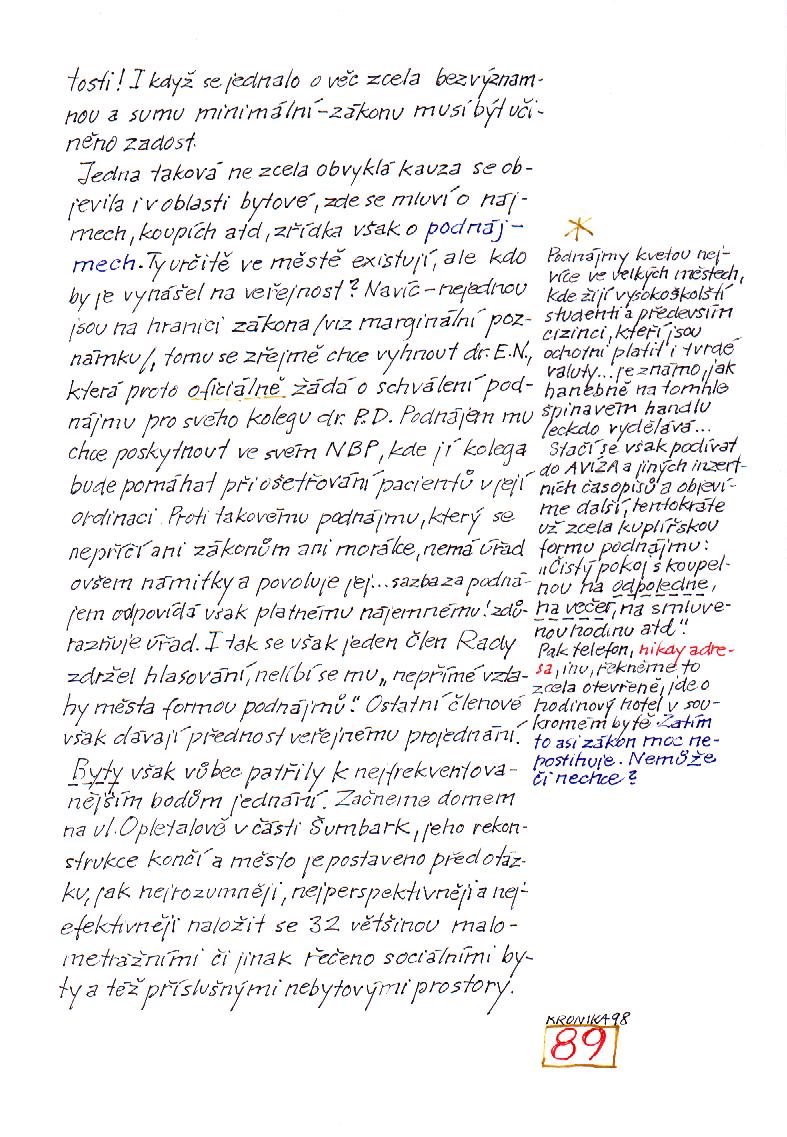 tosti! I když se jednalo o věc zcela bezvýznam-
nou a sumu minimální-zákonu musí být uči-
něno zadost.
Jedna taková ne zcela obvyklá kauza se ob-
jevila i v oblasti bytové, zde se mluví o náj-
mech, koupích atd, zřídka však o podnáj-
mech. Ty určitě ve městě existují, ale kdo
by je vynášel na veřejnost? Navíc - nejednou
jsou na hranici zákona /viz marginální poz-
námku/, tomu se zřejmě chce vyhnout dr. E.N.,
která proto oficiálně žádá o schválení pod-
nájmu pro svého kolegu dr. P.D. Podnájem mu
chce poskytnout ve svém NBP, kde jí kolega
bude pomáhat při ošetřování pacientů v její
ordinaci. Proti takovému podnájmu, který se
nepříčí ani zákonům ani morálce, nemá úřad
ovšem námitky a povoluje jej... sazba za podná-
jem odpovídá však platnému nájemnému! zdů-
razňuje úřad. I tak se však jeden člen Rady
zdržel hlasování, nelíbí se mu „nepřímé vzta-
hy města formou podnájmů". Ostatní členové
však dávají přednost veřejnému projednání.
Byty však vůbec patřily k nejfrekventova-
nějším bodům jednání. Začneme domem
na ul. Opletalově v části Šumbark, jeho rekon-
strukce končí a město je postaveno před otáz-
ku, jak nejrozumněji, nejperspektivněji a nej-
efektivněji naložit se 32 většinou malo-
metrážními či jinak řečeno sociálními by-
ty a též příslušnými nebytovými prostory.
*
Podnájmy kvetou nej-
více ve velkých městech,
kde žijí vysokoškolští
studenti a především
cizinci, kteří jsou
ochotni platit i tvrdé
valuty... je známo, jak
hanebně na tomhle
špinavém handlu
leckdo vydělává...
Stačí se však podívat
do AVIZA a jiných inzert-
ních časopisů a objeví-
me další, tentokráte
už zcela kuplířskou
formu podnájmu:
„Čistý pokoj s koupel-
nou na odpoledne,
na večer, na smluve-
nou hodinu atd".
Pak telefon, nikdy adre-
sa, inu, řekněme to
zcela otevřeně, jde o
hodinový hotel v sou-
kromém bytě. Zatím
to asi zákon moc ne-
postihuje. Nemůže
či nechce?
KRONIKA 98
89